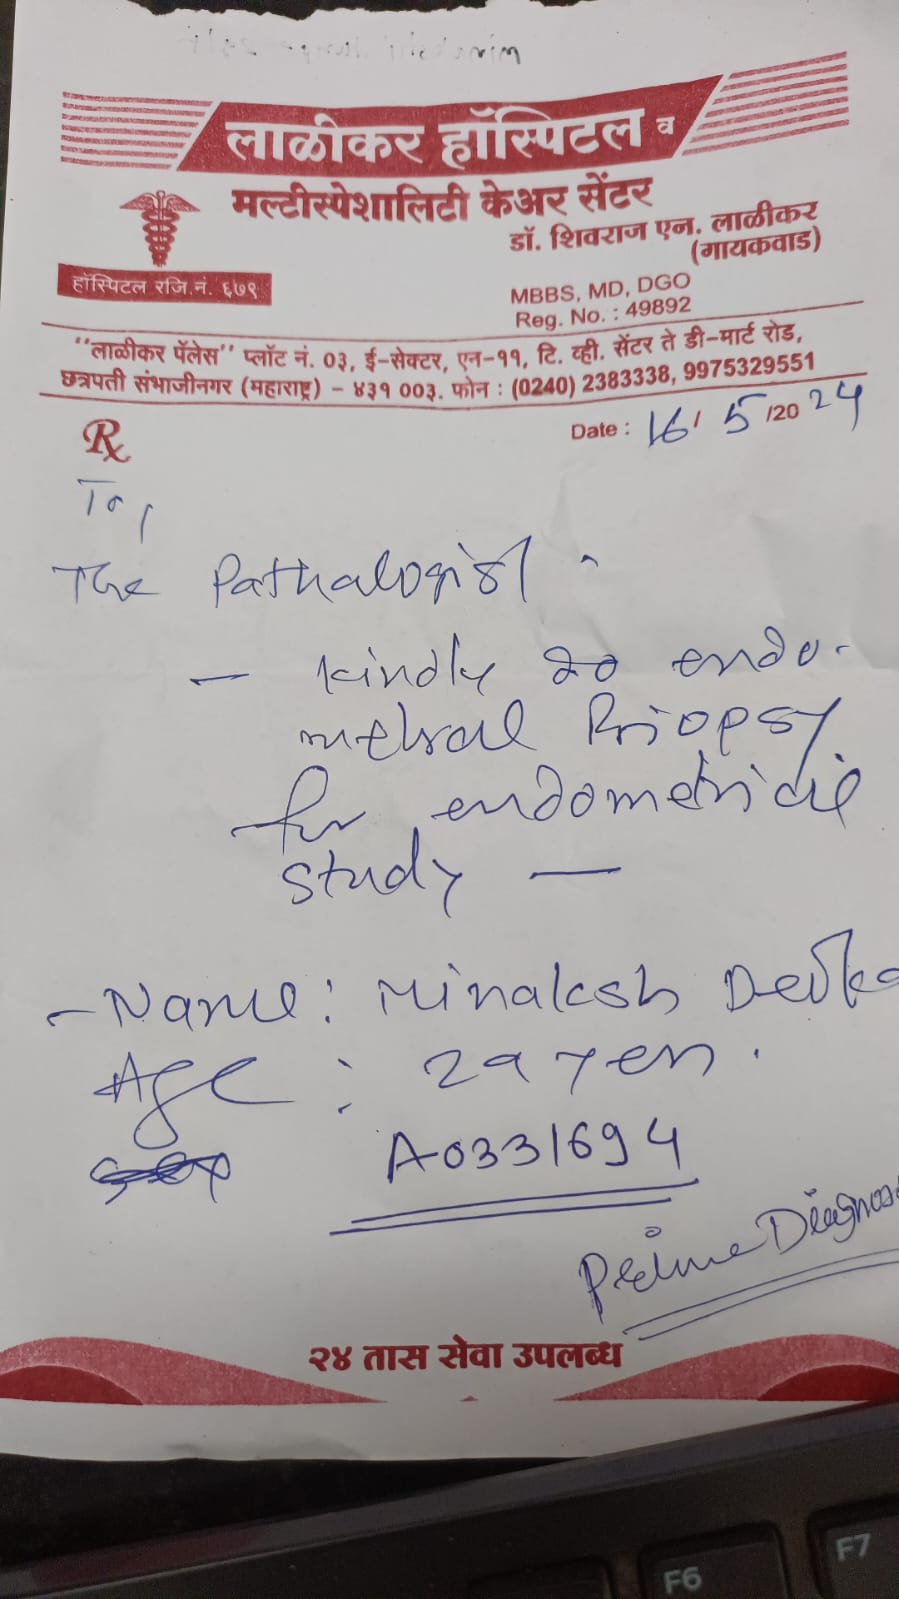 लाळीकर हॉस्पिटल व
मल्टीस्पेशालिटी केअर सेंटर
डॉ. शिवराज एन. लाळीकर
(गायकवाड)
हॉस्पिटल रजि.नं. ६७९
MBBS, MD, DGO
Reg. No. : 49892
"लाळीकर पॅलेस" प्लॉट नं. ०३, ई-सेक्टर, एन-११, टि. व्ही. सेंटर ते डी-मार्ट रोड,
छत्रपती संभाजीनगर (महाराष्ट्र) - ४३१ ००३. फोन : (0240) 2383338, 9975329551
Date : 16/ 5 /2024
Rx
To,
The Pathalogist
- Kindly do endo-
metral Biopsy
for endometrial
study -
- Name : Minaksh
Age :
A0331694
Prime
२४ तास सेवा उपलब्ध
F6
F7